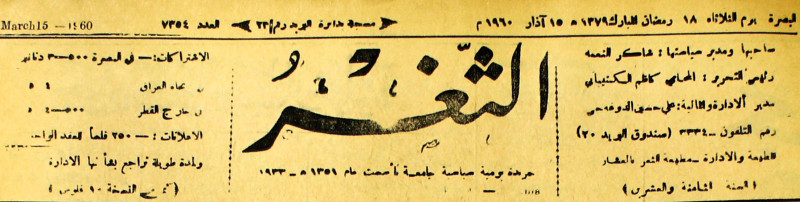 البصرة يوم الثلاثاء ١٨ رمضان المبارك ١٣٧٩ هـ ١٥ آذار ١٩٦٠ م
مسجلة بدائرة البريد رقم ٢٣
العدد ٧٣٥٤
March 15 — 1960
صاحبها ومدير سياستها : شاكر النعمه
رئيس التحرير : المحامي كاظم الكشيباني
مدير الادارة والمالية : علي حسين
رقم التلفون — ٣٣٣٤ (صندوق البريد ٢٠)
المطبعة والادارة — مطبعة الثغر بالعشار
( السنة الثامنة والعشرين )
الثَّغْرُ
جريدة يومية سياسية جامعة تأسست عام ١٣٥١ هـ — ١٩٣٣
الاشتراكات : — في البصرة ٣٠٠٠ دنانير
في انحاء العراق
في خارج القطر
الاعلانات : — ٢٥٠ فلساً للعقد الواحد
ولمدة طويلة تراجع بشأنها الادارة
( ثمن النسخة ١٠ فلوس )